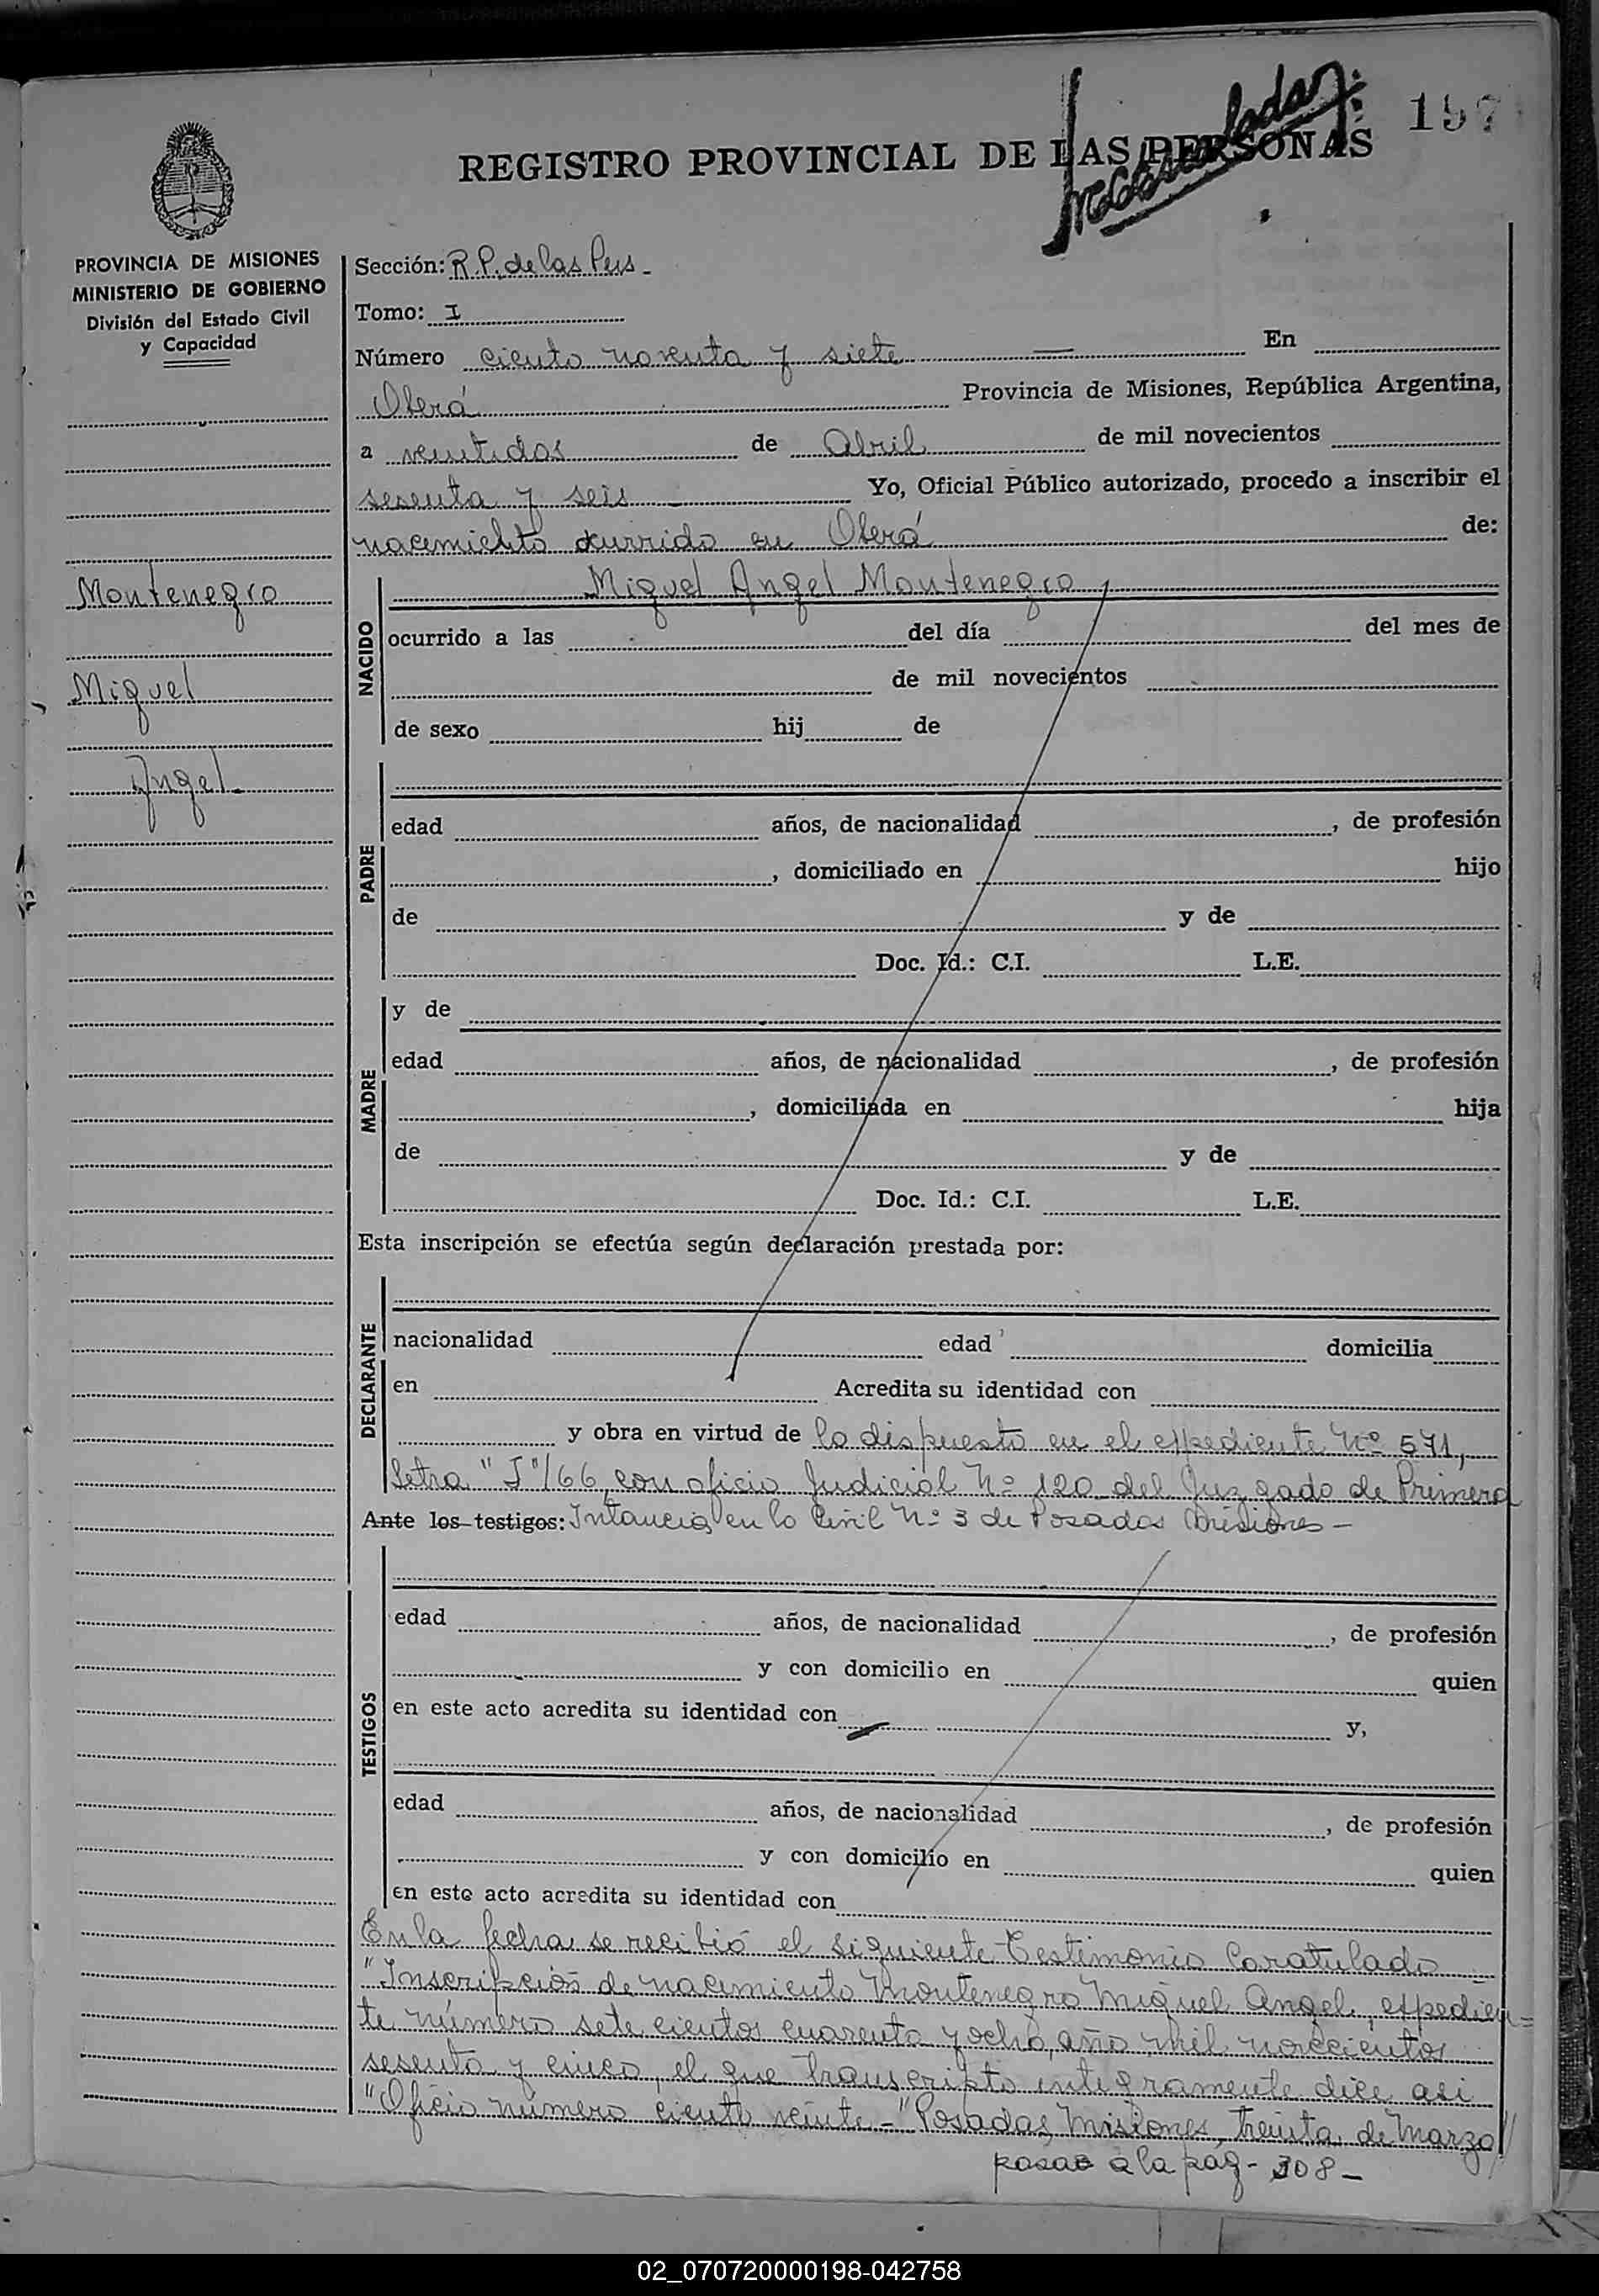 197
Mecanografiada
REGISTRO PROVINCIAL DE LAS PERSONAS
PROVINCIA DE MISIONES
MINISTERIO DE GOBIERNO
División del Estado Civil
y Capacidad
Montenegro
Miguel
Angel.
Sección: R.P. de las Pers -
Tomo: I
Número ciento noventa y siete — En
Oberá Provincia de Misiones, República Argentina,
a veintidos de Abril de mil novecientos
sesenta y seis - Yo, Oficial Público autorizado, procedo a inscribir el
nacimiento ocurrido en Oberá de:
NACIDO
Miguel Angel Montenegro
ocurrido a las del día del mes de
de mil novecientos
de sexo hij de
PADRE
edad años, de nacionalidad , de profesión
, domiciliado en hijo
de y de
Doc. Id.: C.I. L.E.
MADRE
y de
edad años, de nacionalidad , de profesión
, domiciliada en hija
de y de
Doc. Id.: C.I. L.E.
Esta inscripción se efectúa según declaración prestada por:
DECLARANTE
nacionalidad edad domicilia
en Acredita su identidad con
y obra en virtud de lo dispuesto en el expediente Nº 571,
letra "J"/66, con oficio Judicial Nº 120 del Juzgado de Primera
Ante los testigos: Intancia en lo Civil Nº 3 de Posadas Misiones -
TESTIGOS
edad años, de nacionalidad , de profesión
y con domicilio en quien
en este acto acredita su identidad con y,
edad años, de nacionalidad , de profesión
y con domicilio en quien
en este acto acredita su identidad con
En la fecha se recibió el siguiente Testimonio Caratulado -
"Inscripción de nacimiento Montenegro Miguel Angel, expedien=
te número sete cientos cuarenta y ocho, año mil novecientos
sesenta y cinco, el que transcripto integramente dice asi
"Oficio número ciento veinte - "Posadas, Misiones, treinta de Marzo//
pasa a la pág - 308 -
02_070720000198-042758